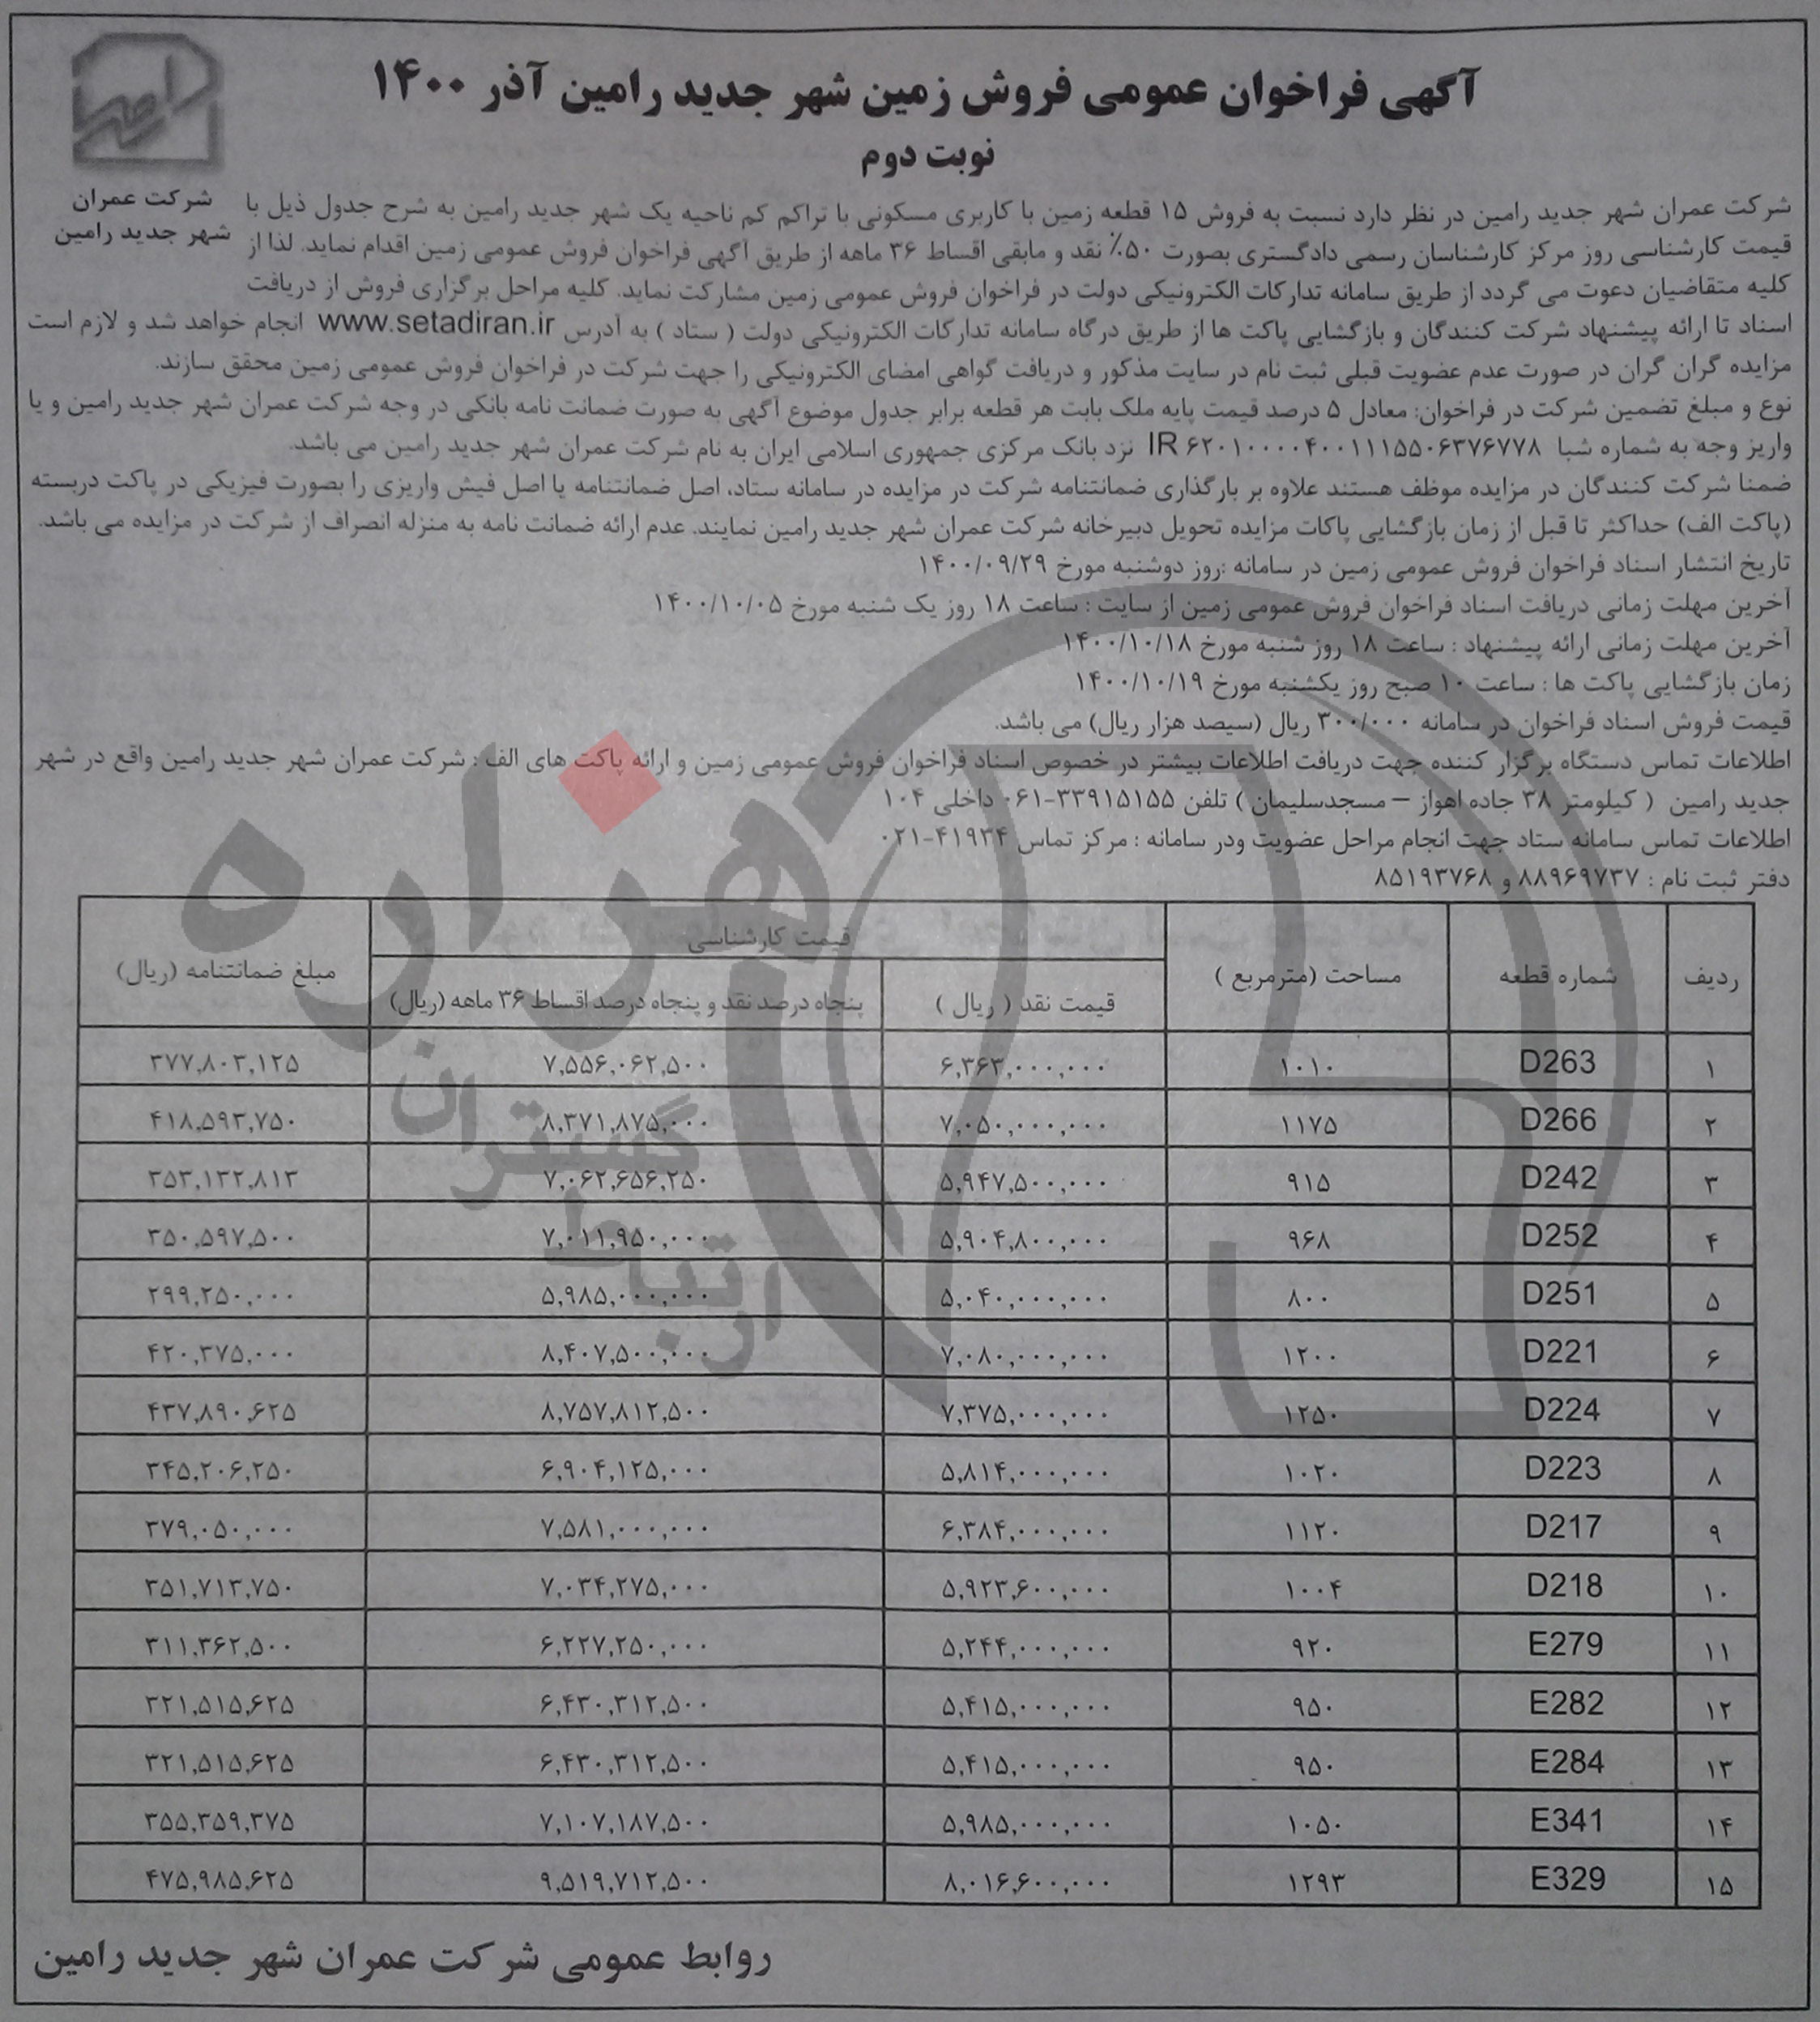 آگهی فراخوان عمومی فروش زمین شهر جدید رامین آذر ۱۴۰۰
نوبت دوم
شرکت عمران
شهر جدید رامین
شرکت عمران شهر جدید رامین در نظر دارد نسبت به فروش ۱۵ قطعه زمین با کاربری مسکونی با تراکم کم ناحیه یک شهر جدید رامین به شرح جدول ذیل با
قیمت کارشناسی روز مرکز کارشناسان رسمی دادگستری بصورت ۵۰٪ نقد و مابقی اقساط ۳۶ ماهه از طریق آگهی فراخوان فروش عمومی زمین اقدام نماید. لذا از
کلیه متقاضیان دعوت می گردد از طریق سامانه تدارکات الکترونیکی دولت در فراخوان فروش عمومی زمین مشارکت نماید. کلیه مراحل برگزاری فروش از دریافت
اسناد تا ارائه پیشنهاد شرکت کنندگان و بازگشایی پاکت ها از طریق درگاه سامانه تدارکات الکترونیکی دولت ( ستاد ) به آدرس www.setadiran.ir انجام خواهد شد و لازم است
مزایده گران گران در صورت عدم عضویت قبلی ثبت نام در سایت مذکور و دریافت گواهی امضای الکترونیکی را جهت شرکت در فراخوان فروش عمومی زمین محقق سازند.
نوع و مبلغ تضمین شرکت در فراخوان: معادل ۵ درصد قیمت پایه ملک بابت هر قطعه برابر جدول موضوع آگهی به صورت ضمانت نامه بانکی در وجه شرکت عمران شهر جدید رامین و یا
واریز وجه به شماره شبا IR ۶۲۰۱۰۰۰۰۴۰۰۱۱۱۵۵۰۶۳۷۶۷۷۸ نزد بانک مرکزی جمهوری اسلامی ایران به نام شرکت عمران شهر جدید رامین می باشد.
ضمنا شرکت کنندگان در مزایده موظف هستند علاوه بر بارگذاری ضمانتنامه شرکت در مزایده در سامانه ستاد، اصل ضمانتنامه یا اصل فیش واریزی را بصورت فیزیکی در پاکت دربسته
(پاکت الف) حداکثر تا قبل از زمان بازگشایی پاکات مزایده تحویل دبیرخانه شرکت عمران شهر جدید رامین نمایند. عدم ارائه ضمانت نامه به منزله انصراف از شرکت در مزایده می باشد.
تاریخ انتشار اسناد فراخوان فروش عمومی زمین در سامانه :روز دوشنبه مورخ ۱۴۰۰/۰۹/۲۹
آخرین مهلت زمانی دریافت اسناد فراخوان فروش عمومی زمین از سایت : ساعت ۱۸ روز یک شنبه مورخ ۱۴۰۰/۱۰/۰۵
آخرین مهلت زمانی ارائه پیشنهاد : ساعت ۱۸ روز شنبه مورخ ۱۴۰۰/۱۰/۱۸
زمان بازگشایی پاکت ها : ساعت ۱۰ صبح روز یکشنبه مورخ ۱۴۰۰/۱۰/۱۹
قیمت فروش اسناد فراخوان در سامانه ۳۰۰/۰۰۰ ریال (سیصد هزار ریال) می باشد.
اطلاعات تماس دستگاه برگزار کننده جهت دریافت اطلاعات بیشتر در خصوص اسناد فراخوان فروش عمومی زمین و ارائه پاکت های الف : شرکت عمران شهر جدید رامین واقع در شهر
جدید رامین ( کیلومتر ۳۸ جاده اهواز – مسجدسلیمان ) تلفن ۳۳۹۱۵۱۵۵-۰۶۱ داخلی ۱۰۴
اطلاعات تماس سامانه ستاد جهت انجام مراحل عضویت ودر سامانه : مرکز تماس ۴۱۹۳۴-۰۲۱
دفتر ثبت نام : ۸۸۹۶۹۷۳۷ و ۸۵۱۹۳۷۶۸
ردیف شماره قطعه مساحت (مترمربع ) قیمت کارشناسی مبلغ ضمانتنامه (ریال)
قیمت نقد ( ریال ) پنجاه درصد نقد و پنجاه درصد اقساط ۳۶ ماهه (ریال)
۱ D263 ۱۰۱۰ ۶,۳۶۳,۰۰۰,۰۰۰ ۷,۵۵۶,۰۶۲,۵۰۰ ۳۷۷,۸۰۳,۱۲۵
۲ D266 ۱۱۷۵ ۷,۰۵۰,۰۰۰,۰۰۰ ۸,۳۷۱,۸۷۵,۰۰۰ ۴۱۸,۵۹۳,۷۵۰
۳ D242 ۹۱۵ ۵,۹۴۷,۵۰۰,۰۰۰ ۷,۰۶۲,۶۵۶,۲۵۰ ۳۵۳,۱۳۲,۸۱۳
۴ D252 ۹۶۸ ۵,۹۰۴,۸۰۰,۰۰۰ ۷,۰۱۱,۹۵۰,۰۰۰ ۳۵۰,۵۹۷,۵۰۰
۵ D251 ۸۰۰ ۵,۰۴۰,۰۰۰,۰۰۰ ۵,۹۸۵,۰۰۰,۰۰۰ ۲۹۹,۲۵۰,۰۰۰
۶ D221 ۱۲۰۰ ۷,۰۸۰,۰۰۰,۰۰۰ ۸,۴۰۷,۵۰۰,۰۰۰ ۴۲۰,۳۷۵,۰۰۰
۷ D224 ۱۲۵۰ ۷,۳۷۵,۰۰۰,۰۰۰ ۸,۷۵۷,۸۱۲,۵۰۰ ۴۳۷,۸۹۰,۶۲۵
۸ D223 ۱۰۲۰ ۵,۸۱۴,۰۰۰,۰۰۰ ۶,۹۰۴,۱۲۵,۰۰۰ ۳۴۵,۲۰۶,۲۵۰
۹ D217 ۱۱۲۰ ۶,۳۸۴,۰۰۰,۰۰۰ ۷,۵۸۱,۰۰۰,۰۰۰ ۳۷۹,۰۵۰,۰۰۰
۱۰ D218 ۱۰۰۴ ۵,۹۲۳,۶۰۰,۰۰۰ ۷,۰۳۴,۲۷۵,۰۰۰ ۳۵۱,۷۱۳,۷۵۰
۱۱ E279 ۹۲۰ ۵,۲۴۴,۰۰۰,۰۰۰ ۶,۲۲۷,۲۵۰,۰۰۰ ۳۱۱,۳۶۲,۵۰۰
۱۲ E282 ۹۵۰ ۵,۴۱۵,۰۰۰,۰۰۰ ۶,۴۳۰,۳۱۲,۵۰۰ ۳۲۱,۵۱۵,۶۲۵
۱۳ E284 ۹۵۰ ۵,۴۱۵,۰۰۰,۰۰۰ ۶,۴۳۰,۳۱۲,۵۰۰ ۳۲۱,۵۱۵,۶۲۵
۱۴ E341 ۱۰۵۰ ۵,۹۸۵,۰۰۰,۰۰۰ ۷,۱۰۷,۱۸۷,۵۰۰ ۳۵۵,۳۵۹,۳۷۵
۱۵ E329 ۱۲۹۳ ۸,۰۱۶,۶۰۰,۰۰۰ ۹,۵۱۹,۷۱۲,۵۰۰ ۴۷۵,۹۸۵,۶۲۵
روابط عمومی شرکت عمران شهر جدید رامین
هزاره
ارتباط
گستران
رامین